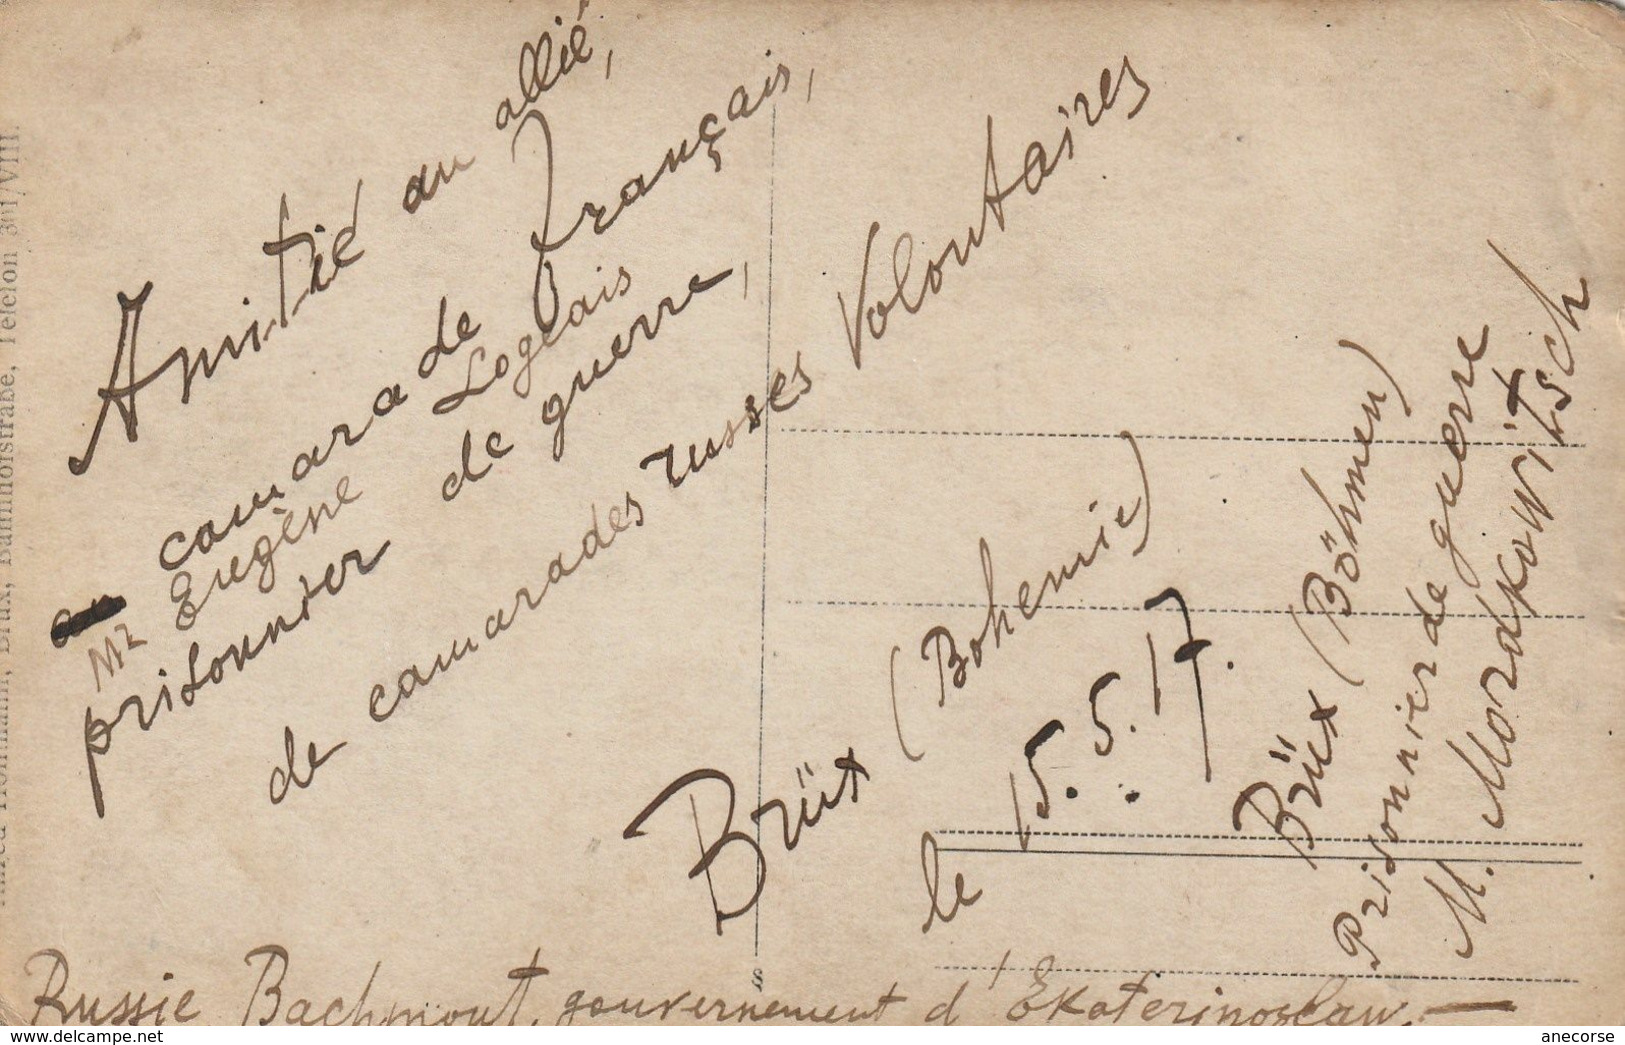 Amitié au allié,
camarade Français,
Mr Eugène Logeais
prisonnier de guerre,
de camarades russes Volontaires
Brüx (Bohemie)
le 15.5.17.
Brüx (Böhmen)
Prisonnier de guerre
M. Mordkowitsch
Russie Bachmout, gouvernement d'Ekaterinoslaw.—
Brüx, Bahnhofstraße, Telefon 301/VIII.
www.delcampe.net
anecorse